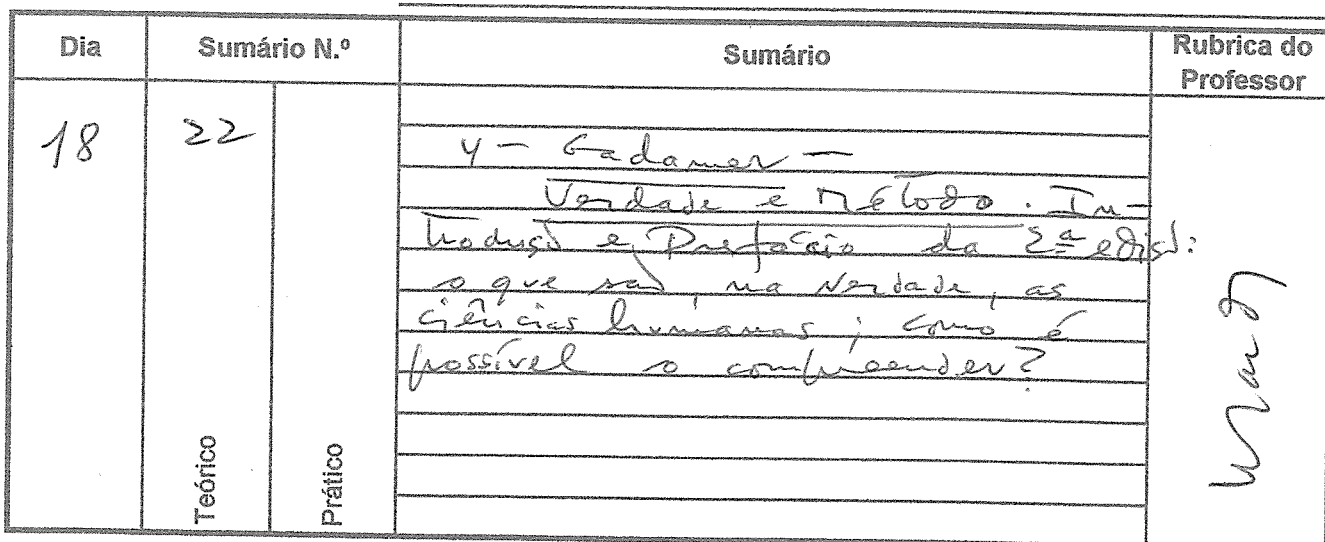 Dia Sumário N.º Sumário Rubrica do Professor
18 22
4 - Gadamer -
Verdade e Método. In-
trodução e Prefácio da 2ª edição:
o que são, na verdade, as
ciências humanas; como é
possível o compreender?
Teórico
Prático